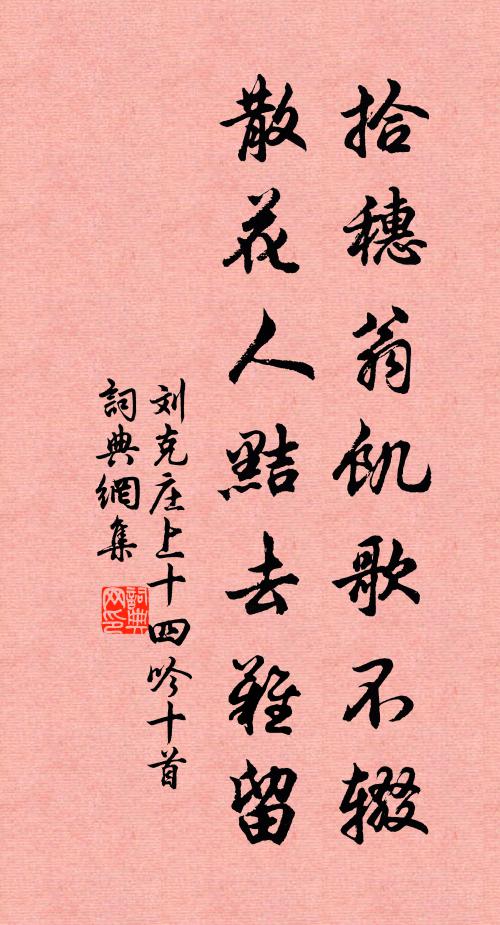 拾穗翁飢歌不辍
散花人黠去難留
刘克庄上十四吟十首
詞典網集
詞典网印